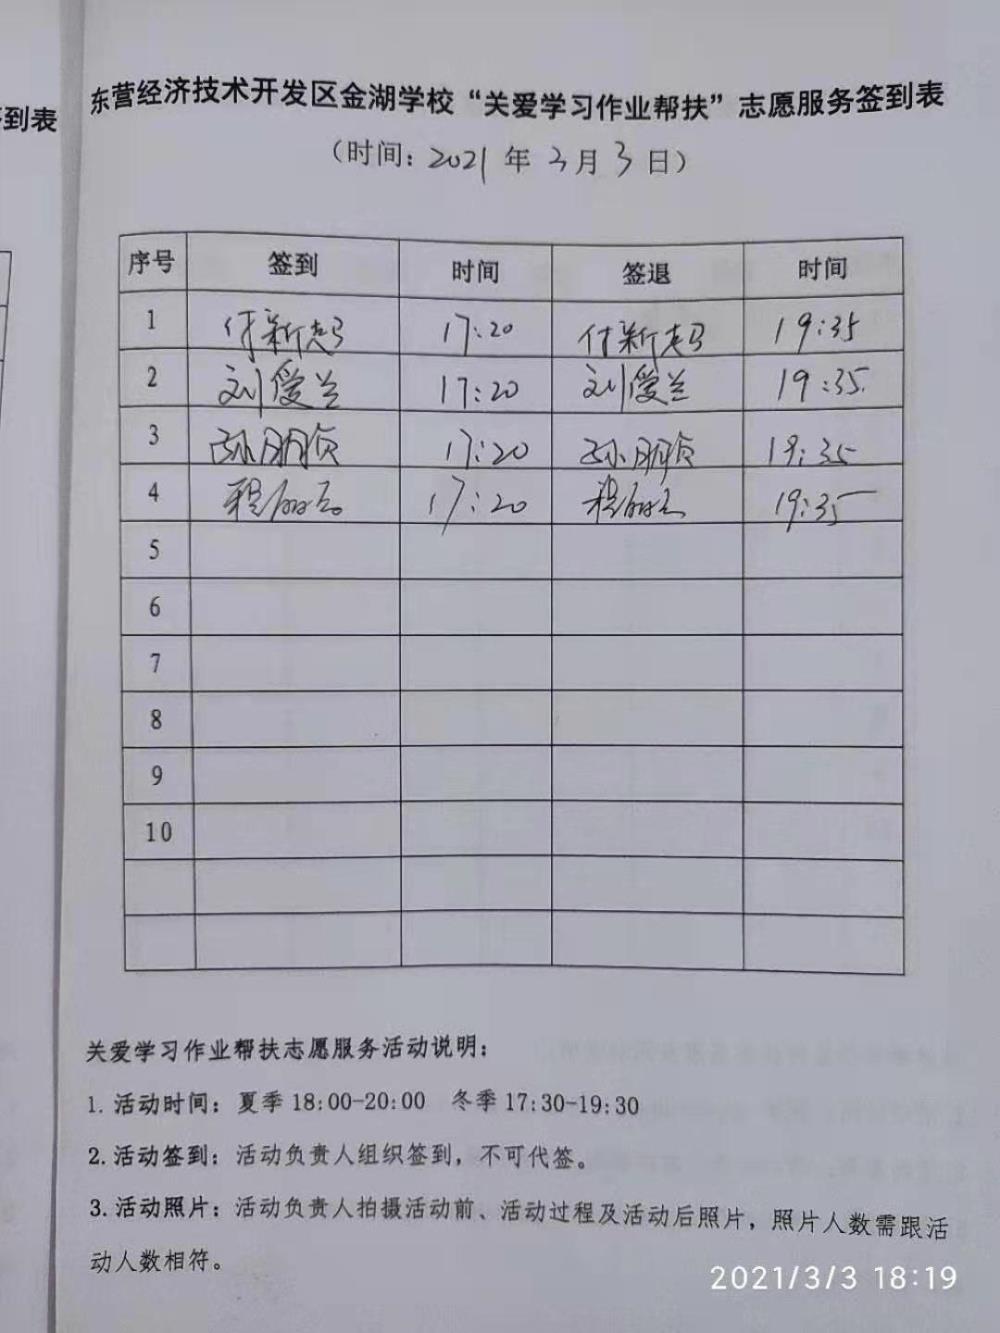 到表
东营经济技术开发区金湖学校“关爱学习作业帮扶”志愿服务签到表
（时间：2021年3月3日）
序号 签到 时间 签退 时间
1 付新起 17:20 付新起 19:35
2 刘爱兰 17:20 刘爱兰 19:35.
3 孙明贞 17:20 孙明贞 19:35
4 程 17:20 程 19:35
5
6
7
8
9
10
关爱学习作业帮扶志愿服务活动说明：
1. 活动时间：夏季 18:00-20:00 冬季 17:30-19:30
2. 活动签到：活动负责人组织签到，不可代签。
3. 活动照片：活动负责人拍摄活动前、活动过程及活动后照片，照片人数需跟活
动人数相符。
2021/3/3 18:19